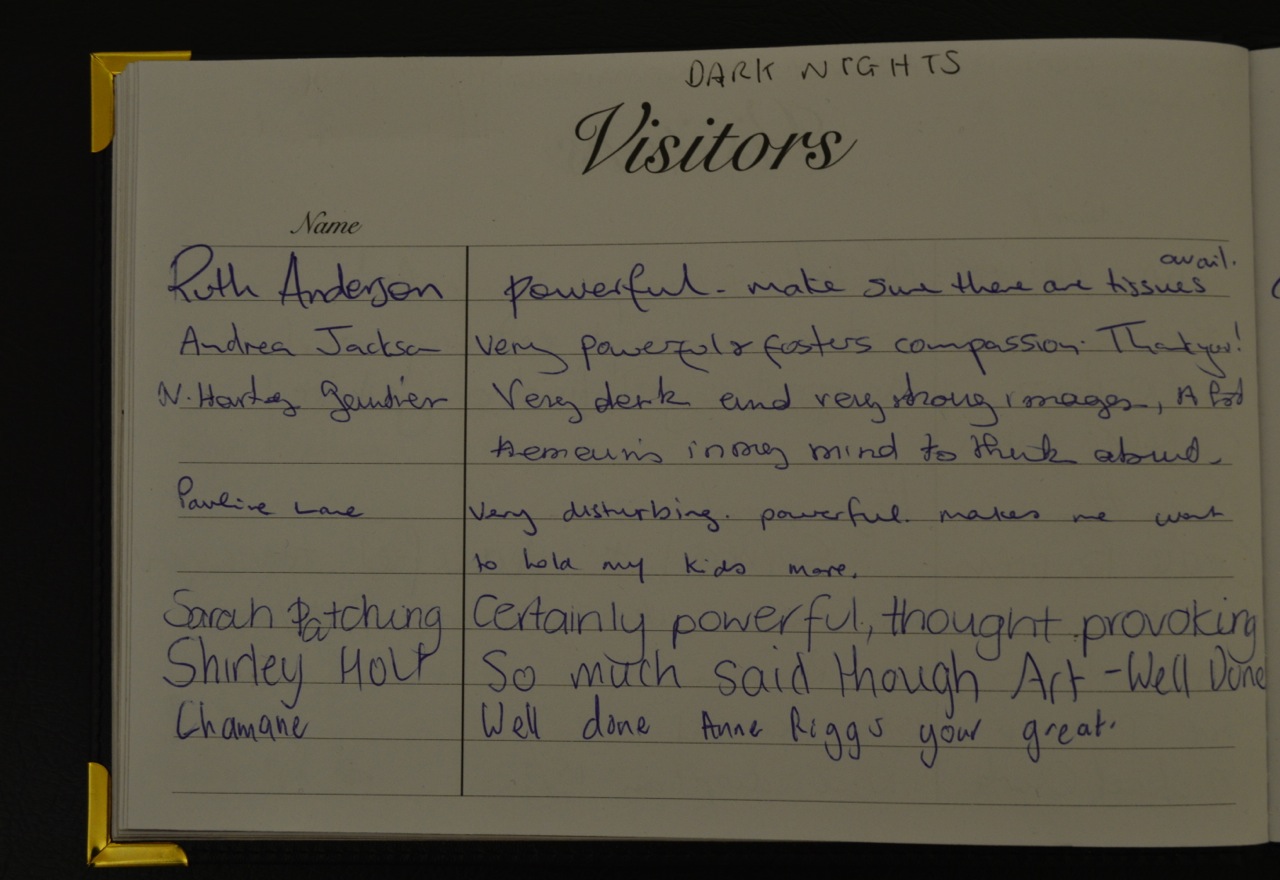 DARK NIGHTS
Visitors
Name
avail.
Ruth Anderson powerful - make sure there are tissues
Andrea Jackson Very powerful & fosters compassion. Thankyou!
N. Hartley Gautier Very dark and very strong images, A lot
remains in my mind to think about.
Pauline Lane Very disturbing. powerful. makes me want
to hold my kids more.
Sarah Patching Certainly powerful, thought provoking
Shirley Holt So much said though Art - Well Done
Chamane Well done Anne Riggs your great.